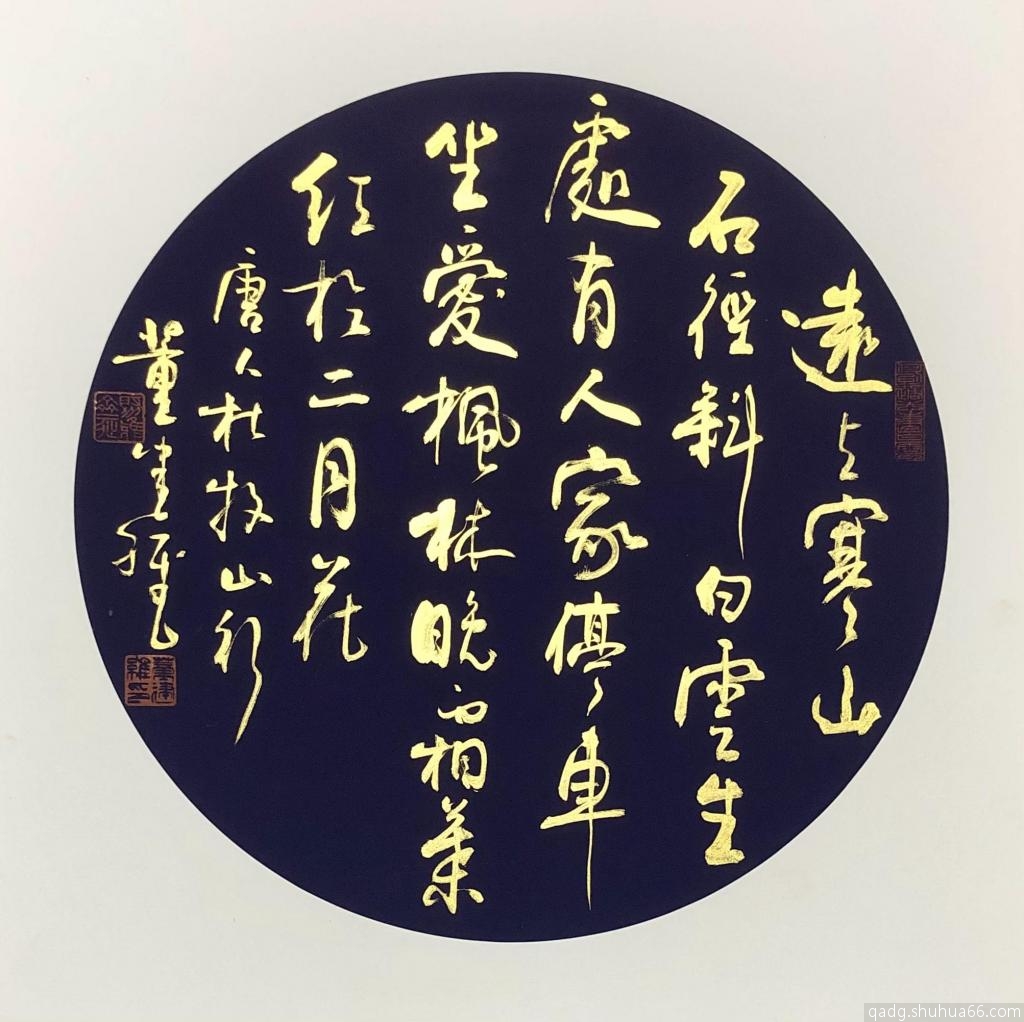 遠上寒山
石徑斜白雲生
處有人家停車
坐愛楓林晚霜葉
紅於二月花
唐人杜牧山行
董建
qadg.shuhua66.com